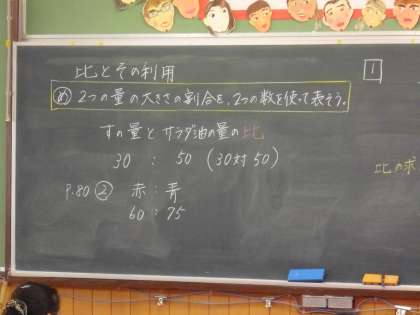 比とその利用
1
め 2つの量の大きさの割合を、2つの数を使って表そう。
すの量とサラダ油の量の比
30 : 50 (30対50)
比の求
P.80 ② 赤:青
60:75